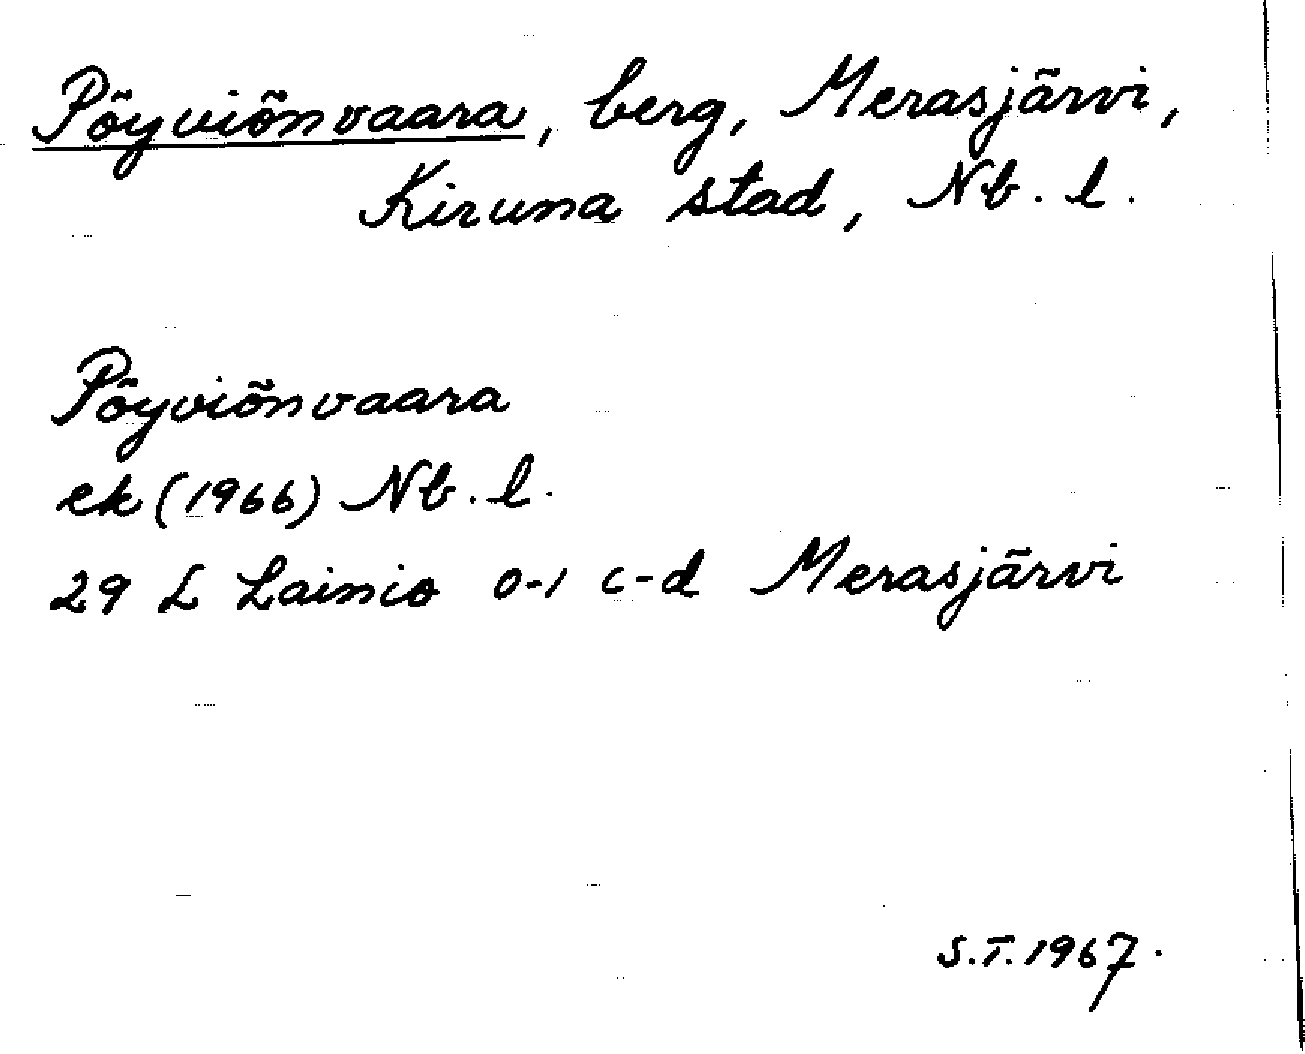 Pöyviönvaara, berg, Merasjärvi,
Kiruna stad, Nb. l.
Pöyviönvaara
ek (1966) Nb. l.
29 L Lainio 0-1 c-d Merasjärvi
S.T. 1967.